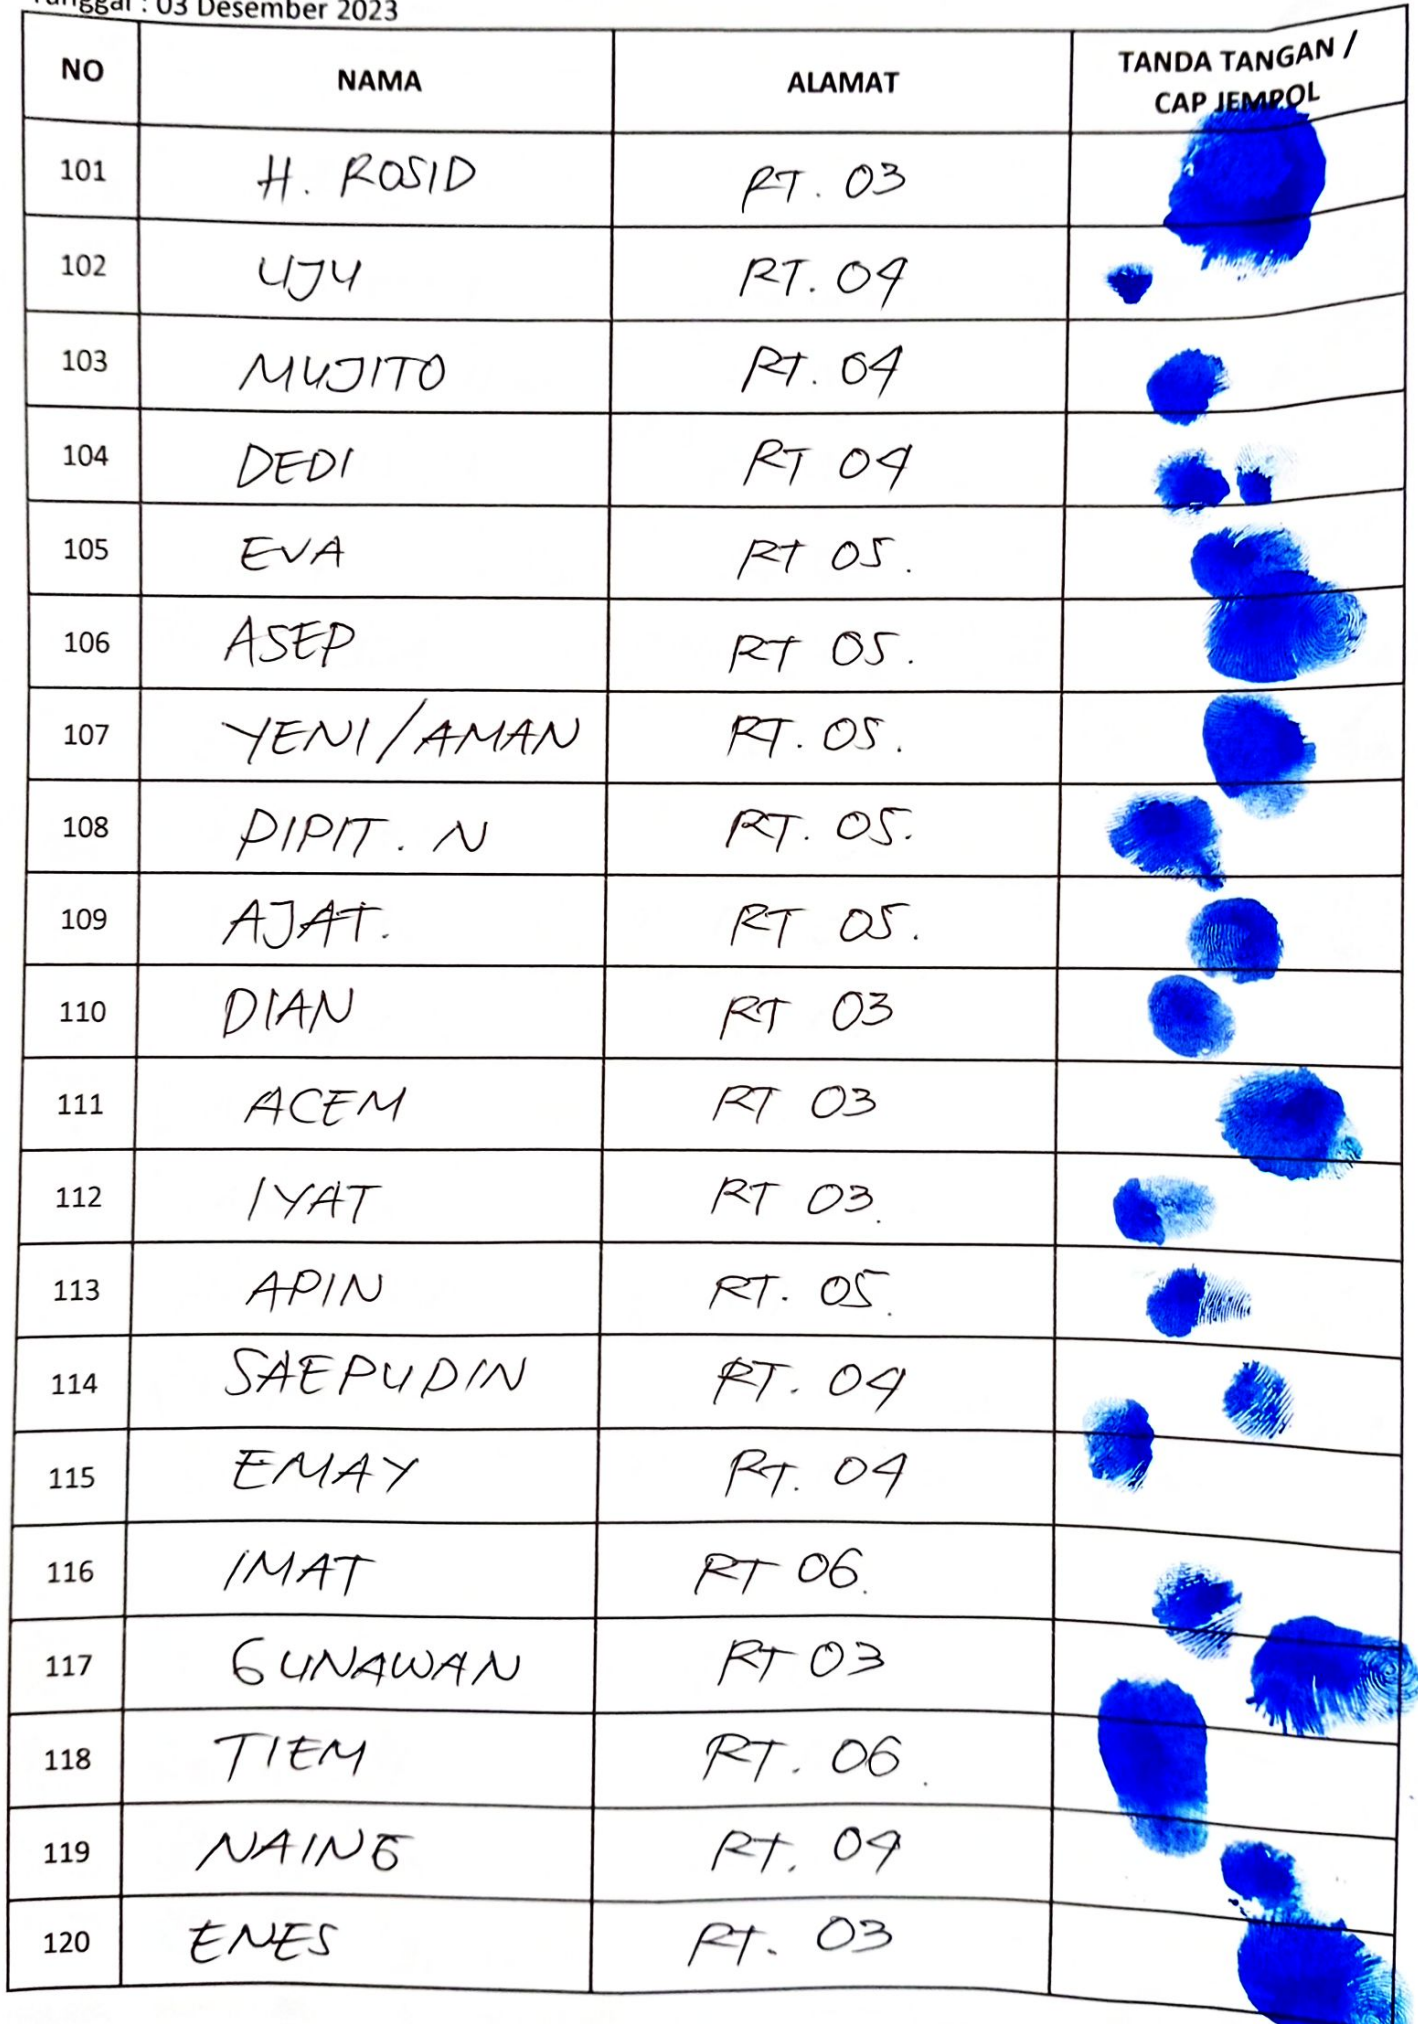 Tanggal : 03 Desember 2023
NO NAMA ALAMAT TANDA TANGAN /
CAP JEMPOL
101 H. ROSID RT. 03
102 UJU RT. 04
103 MUJITO RT. 04
104 DEDI RT 04
105 EVA RT 05.
106 ASEP RT 05.
107 YENI/AMAN RT. 05.
108 PIPIT. N RT. 05.
109 AJAT. RT 05.
110 DIAN RT 03
111 ACEM RT 03
112 IYAT RT 03.
113 APIN RT. 05.
114 SAEPUDIN RT. 04
115 EMAY RT. 04
116 IMAT RT 06.
117 GUNAWAN RT 03
118 TIEM RT. 06.
119 NAING RT. 04
120 ENES RT. 03